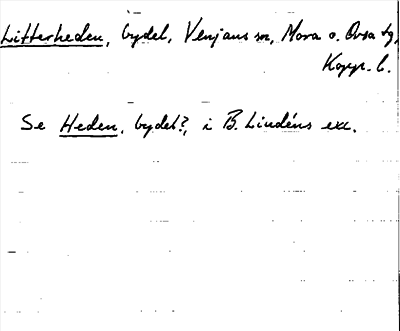 Litterheden, bydel, Venjans sn, Mora o. Orsa tg,
Kopp. l.
Se Heden, bydel?, i B. Lindéns exc.